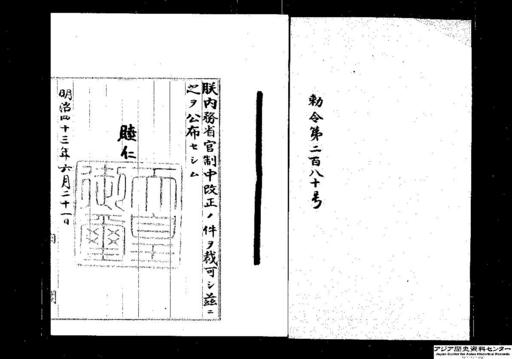 勅令第二百八十号
朕内務省官制中改正ノ件ヲ裁可シ茲ニ
之ヲ公布セシム
睦仁
天皇御璽
明治四十三年六月二十一日
内閣
アジア歴史資料センター
Japan Center for Asian Historical Records